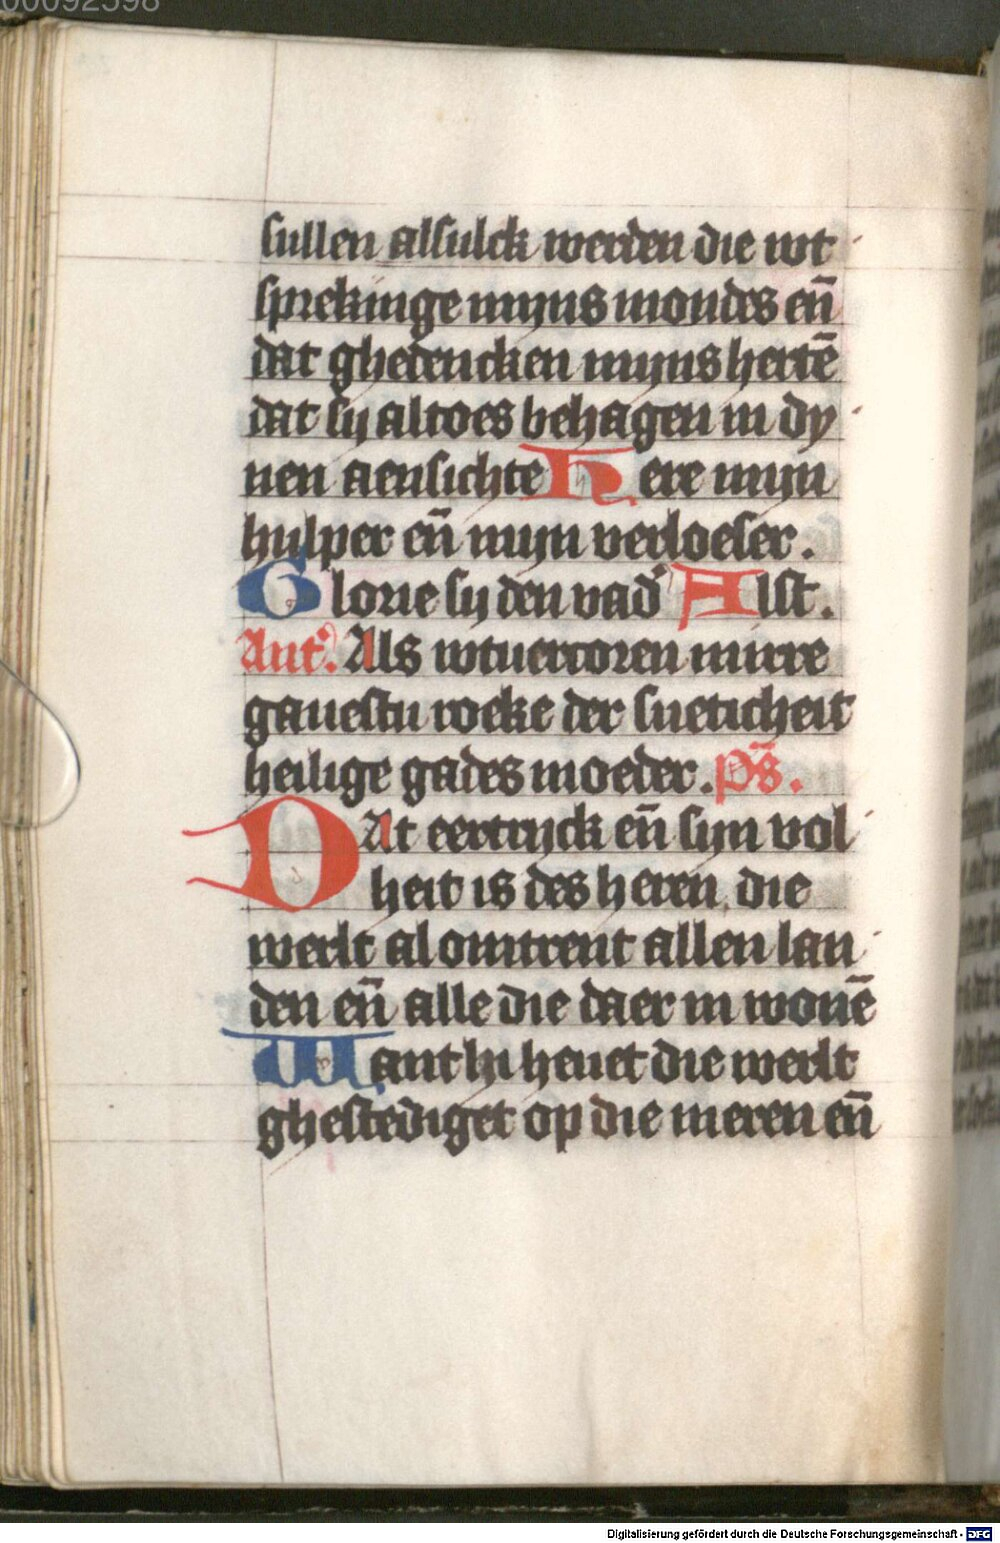 00092598
sullen alsulck werden die wt
sprekinge myns mondes en̄
dat ghedencken myns hertē
dat sy altoes behagen in dy
nen aensichte Here myn
hulper en̄ myn verloeser.
Glorie sy den vad' Alst.
Ant'. Als wtuercoren mirre
gauestu roeke der sueticheit
heilige gades moeder. ps̄.
DAt eertryck en̄ syn vol
heit is des heren, die
werlt al omtrent allen lan
den en̄ alle die daer in wonē
Want hi heuet die werlt
ghestediget op die meren en̄
Digitalisierung gefördert durch die Deutsche Forschungsgemeinschaft - DFG